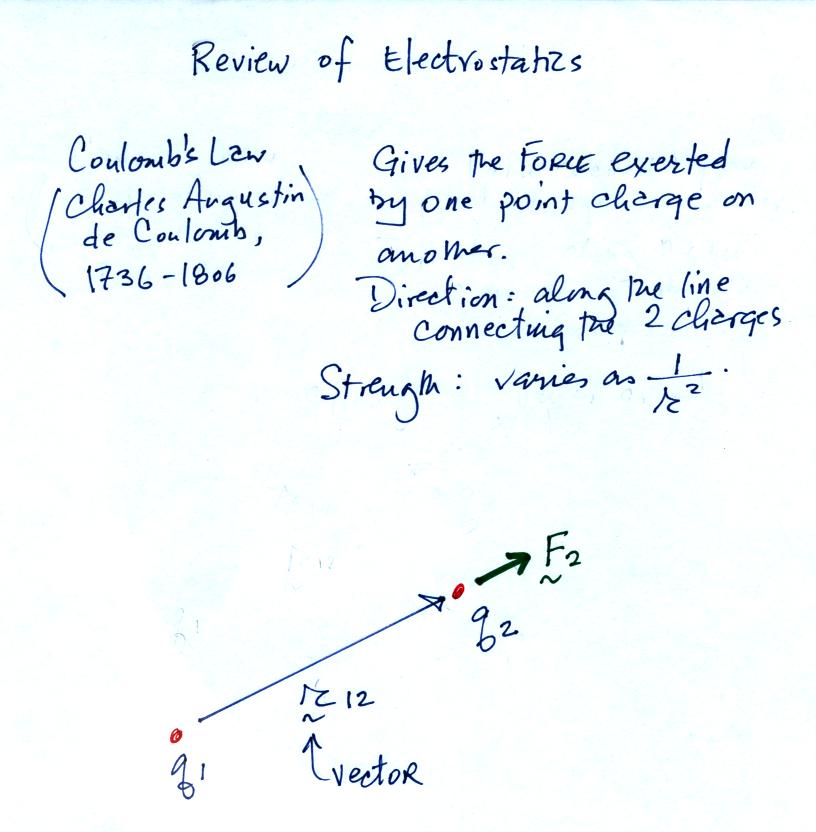 Review of Electrostatics
Coulomb's Law
(Charles Augustin
de Coulomb,
1736-1806)
Gives the FORCE exerted
by one point charge on
another.
Direction: along the line
connecting the 2 charges
Strength: varies as 1/r².
F2
q2
r12
q1
vector